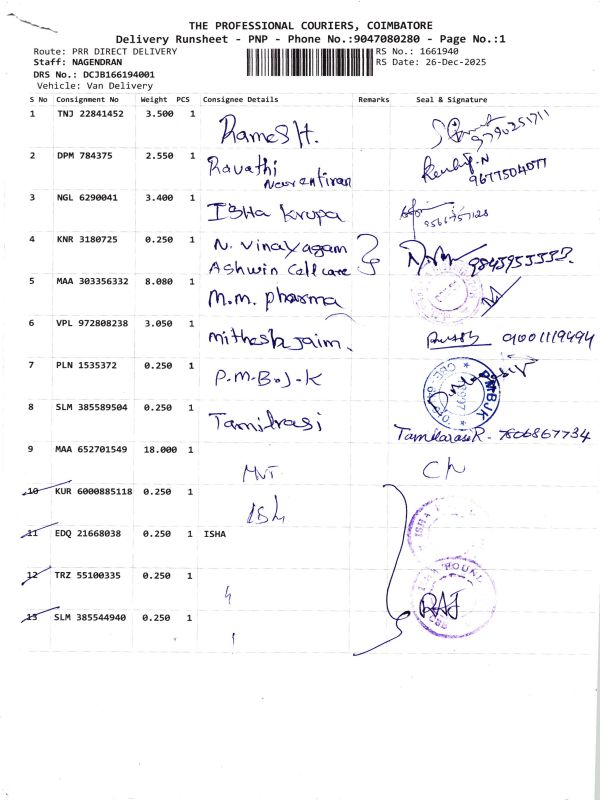 THE PROFESSIONAL COURIERS, COIMBATORE
Delivery Runsheet - PNP - Phone No.:9047080280 - Page No.:1
Route: PRR DIRECT DELIVERY
RS No.: 1661940
Staff: NAGENDRAN
RS Date: 26-Dec-2025
DRS No.: DCJB166194001
Vehicle: Van Delivery
S No Consignment No Weight PCS Consignee Details Remarks Seal & Signature
1 TNJ 22841452 3.500 1 Ramesh. 9790251711
2 DPM 784375 2.550 1 Ravathi
Naventiran 9677504077
3 NGL 6290041 3.400 1 ISHA Krupa 9566757128
4 KNR 3180725 0.250 1 N. Vinayagam
Ashwin Cell care
5 MAA 303356332 8.080 1 M.m. pharma
6 VPL 972808238 3.050 1 mithesh jaim.
7 PLN 1535372 0.250 1 P.M.B.J.K PMBJK
8 SLM 385589504 0.250 1 Tamilrasi
Tamilarasi R. 7806867734
9 MAA 652701549 18.000 1 MVT
10 KUR 6000885118 0.250 1 Ish
11 EDQ 21668038 0.250 1 ISHA ISHA
12 TRZ 55100335 0.250 1
13 SLM 385544940 0.250 1 RAJ